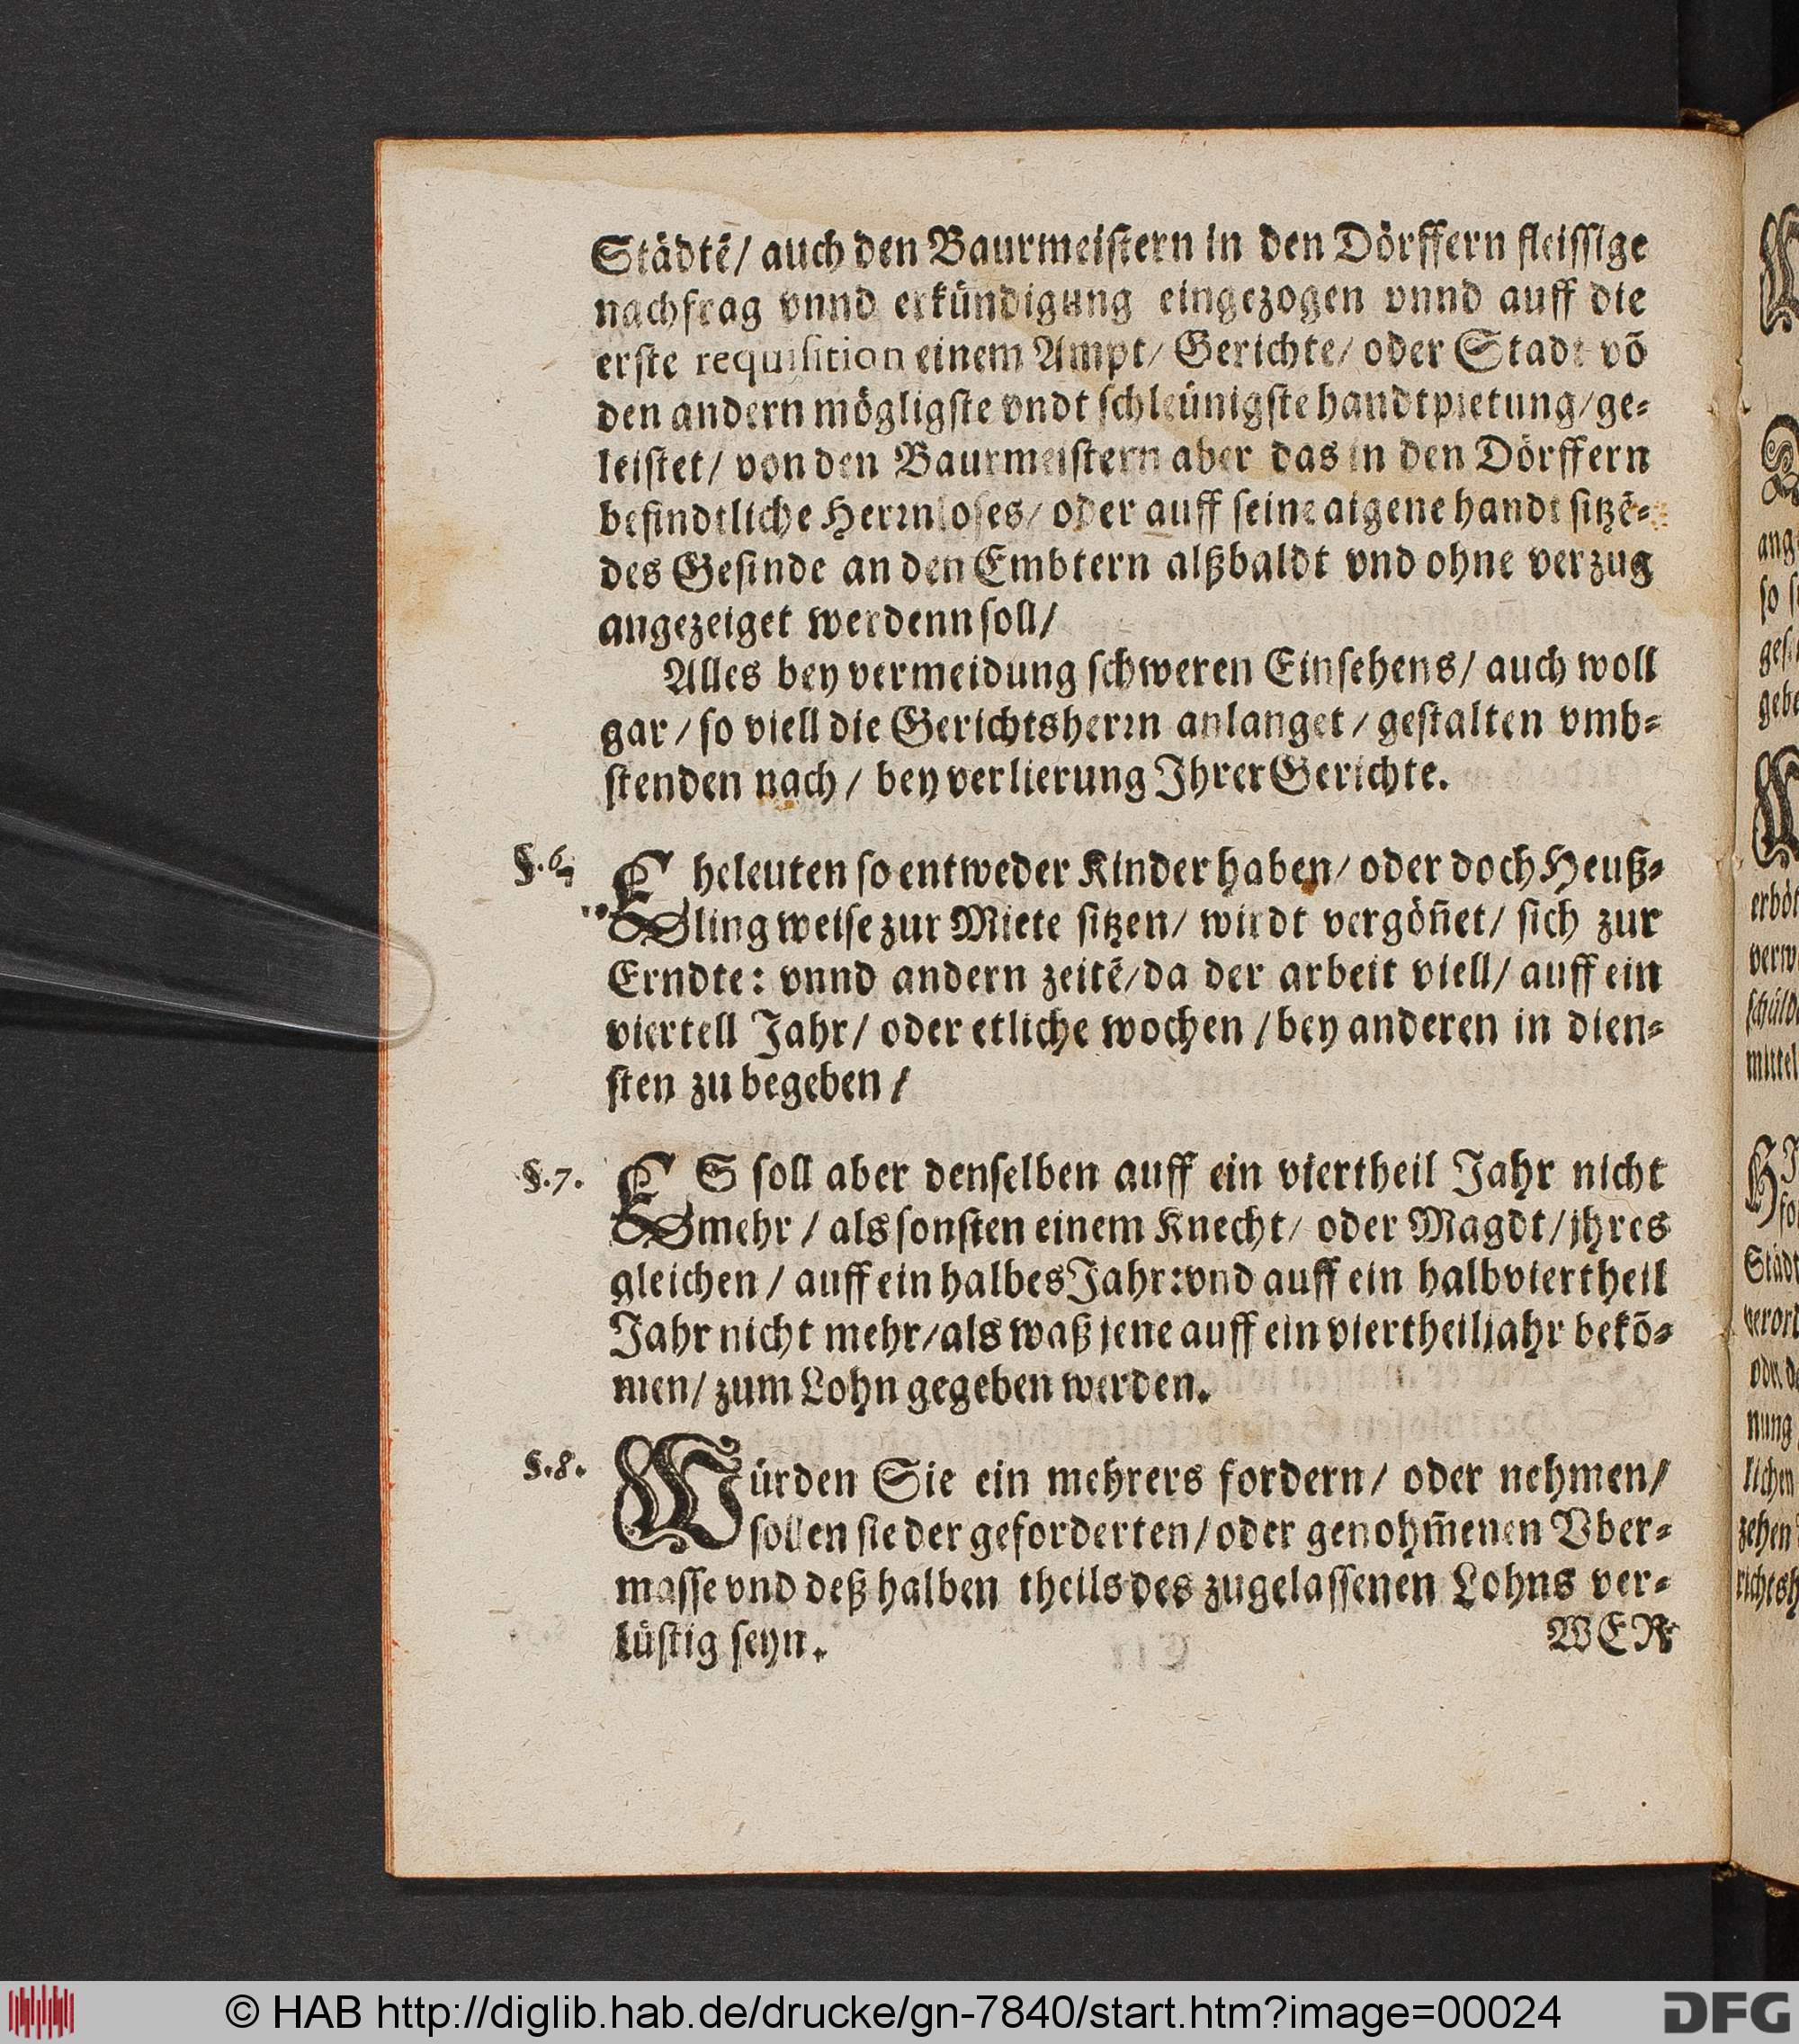 Städtē/ auch den Baurmeiſtern in den Dörffern fleiſſige
nachfrag vnnd erkündigung eingezogen vnnd auff die
erſte requiſition einem Ampt/ Gerichte/ oder Stadt võ
den andern mögligſte vndt ſchleünigſte handtpietung/ge-
leiſtet/ von den Baurmeiſtern aber das in den Dörffern
befindtliche Herrnloſes/ oder auff ſeine aigene handt ſitzē-
des Geſinde an den Embtern alßbaldt vnd ohne verzug
angezeiget werdenn ſoll/
Alles bey vermeidung ſchweren Einſehens/ auch woll
gar/ ſo viell die Gerichtsherrn anlanget/ geſtalten vmb-
ſtenden nach/ bey verlierung Ihrer Gerichte.
§.6. Eheleuten ſo entweder Kinder haben/ oder doch Heuß-
ling weiſe zur Miete ſitzen/ wirdt vergöñet/ ſich zur
Erndte: vnnd andern zeitē/da der arbeit viell/ auff ein
viertell Jahr/ oder etliche wochen/bey anderen in dien-
ſten zu begeben/
§.7. ES ſoll aber denſelben auff ein viertheil Jahr nicht
mehr/ als ſonſten einem Knecht/ oder Magdt/jhres
gleichen/ auff ein halbes Jahr:vnd auff ein halbviertheil
Jahr nicht mehr/als waß jene auff ein viertheiljahr bekō-
men/ zum Lohn gegeben werden.
§.8. Würden Sie ein mehrers fordern/ oder nehmen/
ſollen ſie der geforderten/oder genohm̃enen Vber-
maſſe vnd deß halben theils des zugelaſſenen Lohns ver-
lüſtig ſeyn.
WER
© HAB http://diglib.hab.de/drucke/gn-7840/start.htm?image=00024
DFG